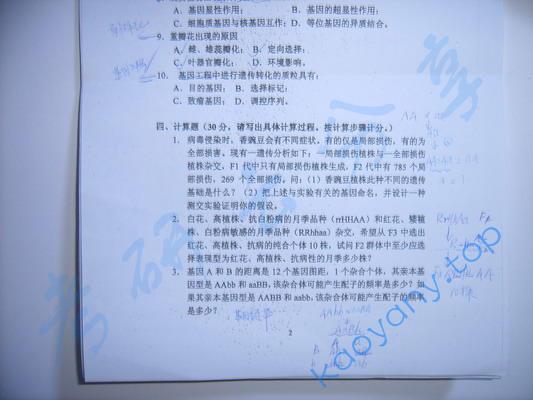 A. 基因显性作用； B. 基因的超显性作用；
C. 细胞质基因与核基因互作；D. 等位基因的异质结合。
9. 重瓣花出现的原因
A. 雌、雄蕊瓣化； B. 定向选择；
C. 叶器官瓣化； D. 环境影响。
10. 基因工程中进行遗传转化的质粒具有：
A. 目的基因； B. 选择标记；
C. 致瘤基因； D. 调控序列。
四、计算题（30分，请写出具体计算过程，按计算步骤计分。）
1. 病毒侵染时，香豌豆会有不同症状，有的仅是局部损伤，有的为
全部损害。现有一遗传分析如下：一局部损伤植株与一全部损伤
植株杂交，F1代中只有局部损伤植株生成，F2代中有785个局
部损伤，269个全部损伤。问：(1) 香豌豆植株此种不同的遗传
基础是什么？(2) 把上述与实验有关的基因命名，并设计一种
测交实验证明你的假设。
2. 白花、高植株、抗白粉病的月季品种（rrHHAA）和红花、矮植
株、白粉病敏感的月季品种（RRhhaa）杂交，希望从F3中选出
红花、高植株、抗病的纯合个体10株，试问F2群体中至少应选
择表现型为红花、高植株、抗病性的月季多少株？
3. 基因A和B的距离是12个基因图距，1个杂合个体，其亲本基
因型是AAbb和aaBB，该杂合体可能产生配子的频率是多少？如
果其亲本基因型是AABB和aabb，该杂合体可能产生配子的频率
是多少？
2
kaoyany.top